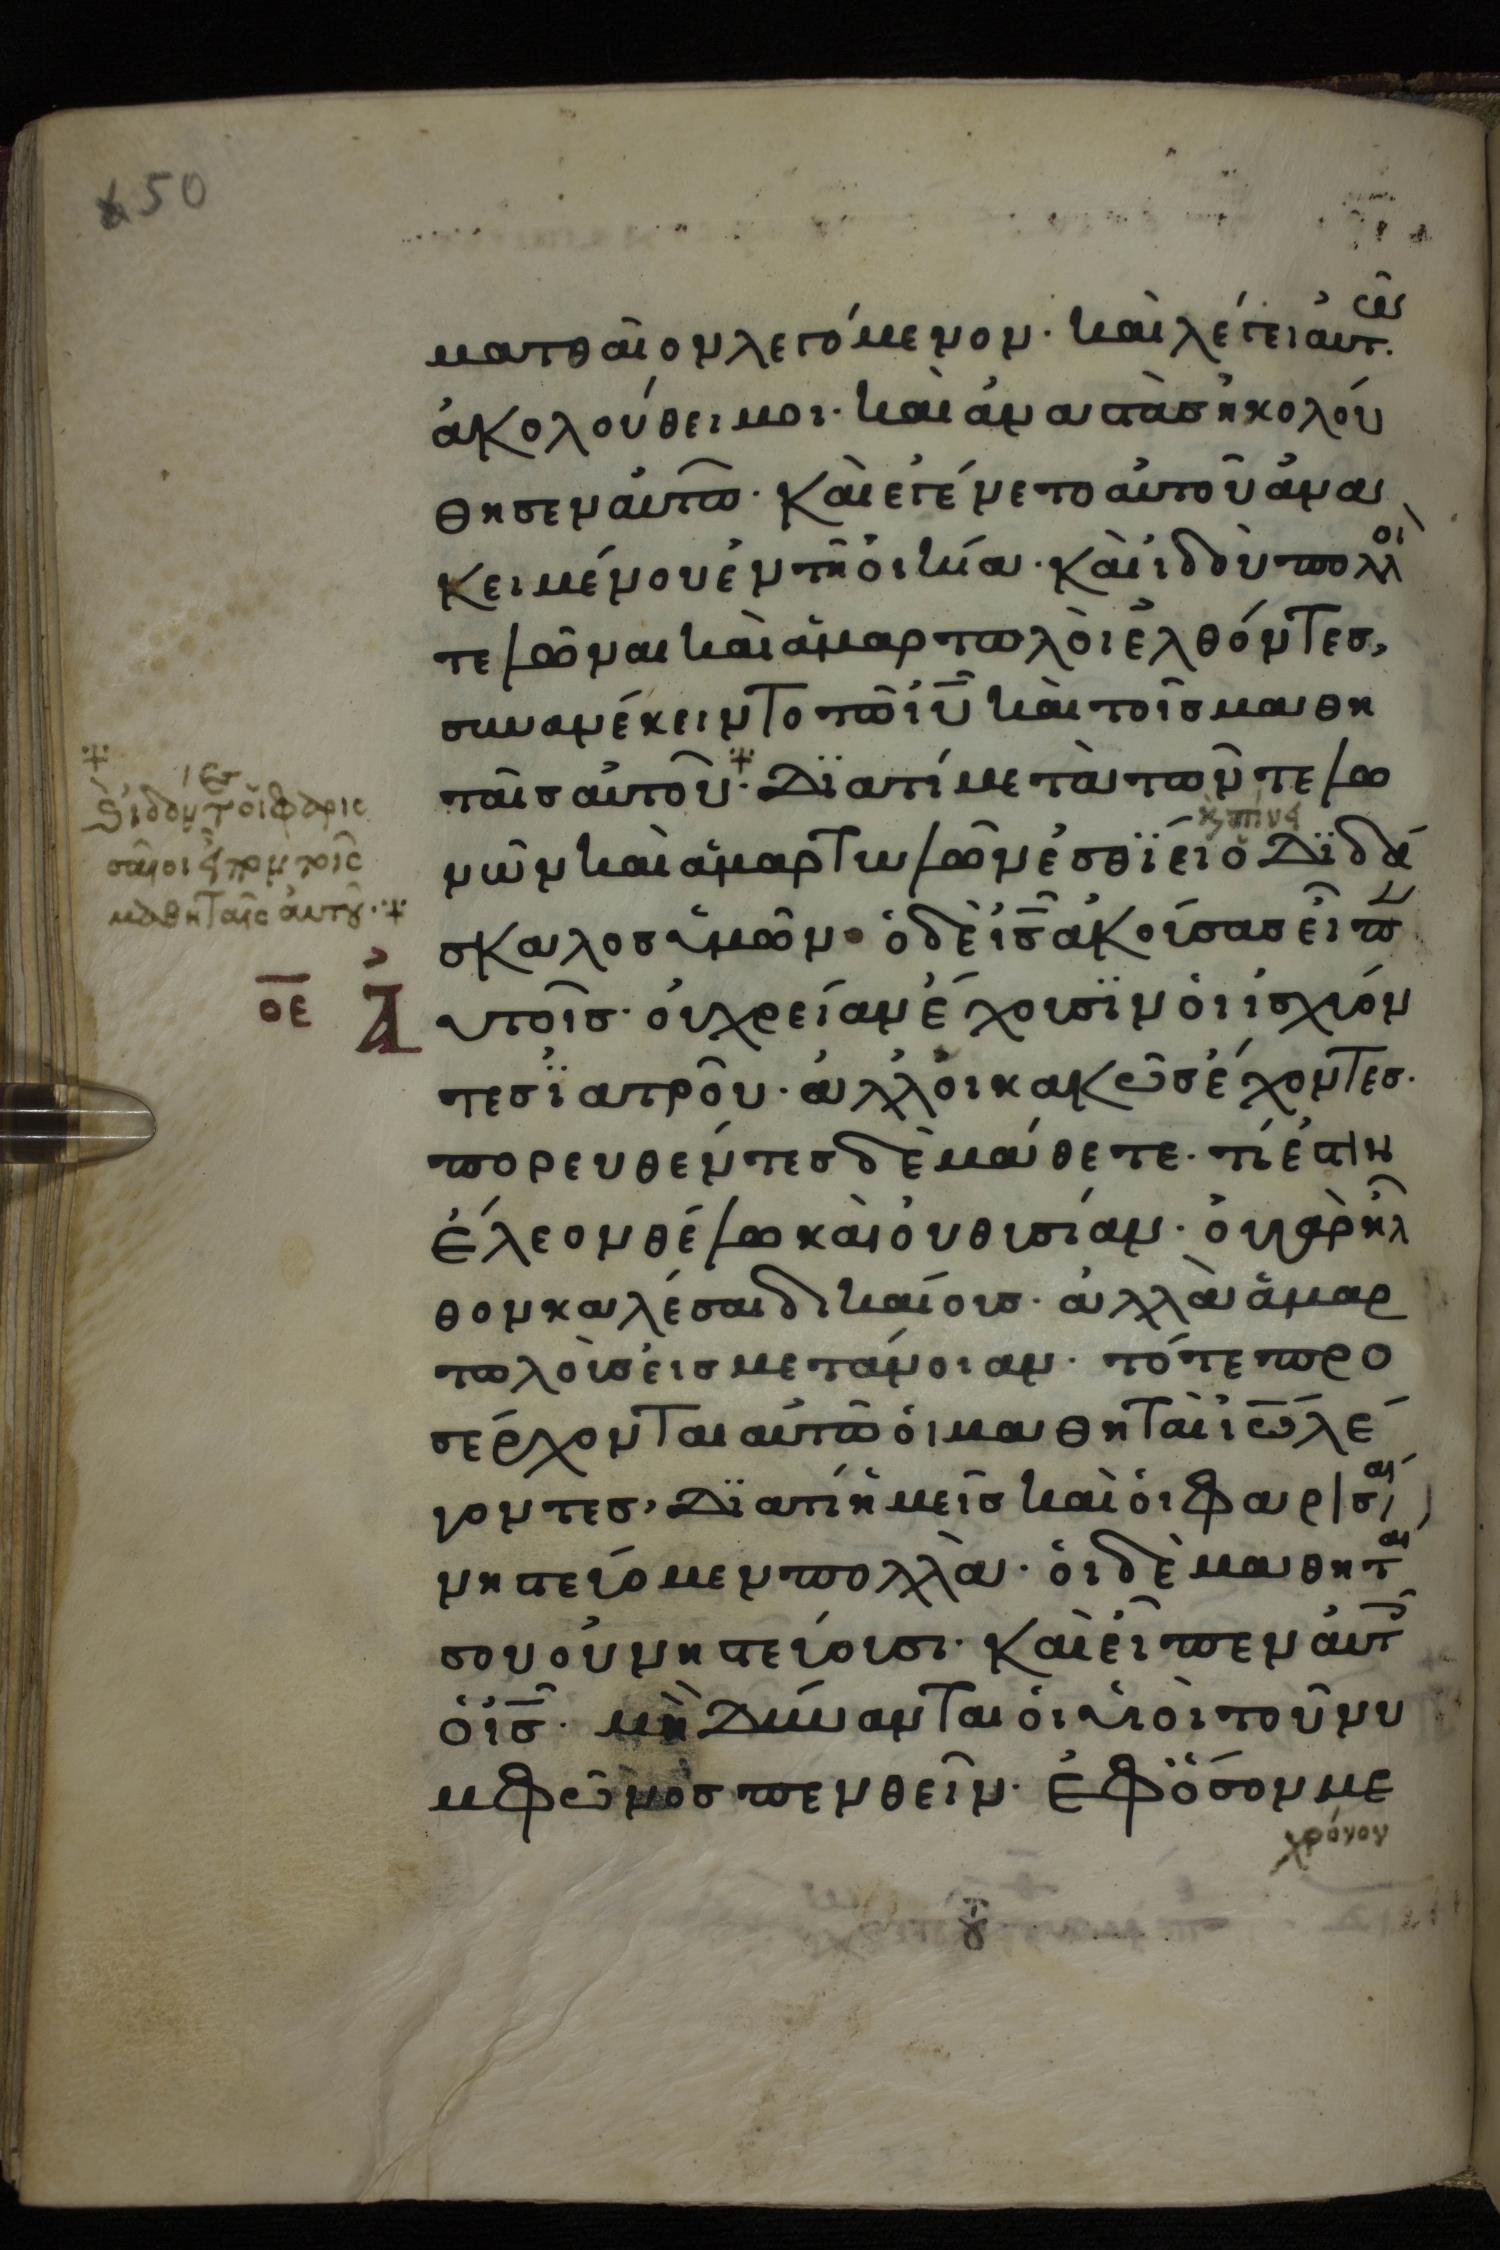 50
ματθαῖον λεγόμενον· καὶ λέγει αὐτῶ
ἀκολούθει μοι· καὶ ἀναστὰς ἠκολού
θησεν αὐτῶ· καὶ ἐγένετο αὐτοῦ ἀνα
κειμένου ἐν τῆ οἰκία· καὶ ἰδοὺ πολλοὶ
τελῶναι καὶ ἁμαρτωλοὶ ἐλθόντες,
συνανέκειντο τῶ ἰῦ καὶ τοῖς μαθη
ταῖς αὐτοῦ· Διατί μετὰ τῶν τελω
κ πίνει
νῶν καὶ ἁμαρτωλῶν ἐσθίει ὁ Διδά
σκαλος ὑμῶν· ὁ δὲ ις ἀκούσας εἶπεν
ἰδόντες οἱ φαρισ
σαῖοι ἔλεγον τοῖς
μαθηταῖς αὐτοῦ·
οε Ἀ
υτοῖς· οὐ χρείαν ἔχουσϊν οἱ ἰσχύον
τες ϊατροῦ· ἀλλ' οἱ κακῶς ἔχοντες·
πορευθέντες δὲ μάθετε· τί ἐστιν
ἔλεον θέλω καὶ οὐ θυσίαν· οὐ γὰρ ἦλ
θον καλέσαι δικαίους· ἀλλὰ ἁμαρ
τωλοὺς εἰς μετάνοιαν· τότε προ
σέρχονται αὐτῶ οἱ μαθηταὶ ἰω λέ
γοντες, Διατί ἡμεῖς καὶ οἱ φαρισαῖ
νηστεύομεν πολλὰ· οἱ δὲ μαθηται
σου οὐ νηστεύουσι· καὶ εἶπεν αὐτ
ὁ ις· μὴ Δύνανται οἱ υἱοὶ τοῦ νυ
μφῶνος πενθεῖν· ἐφ' ὅσον με
χρόνον